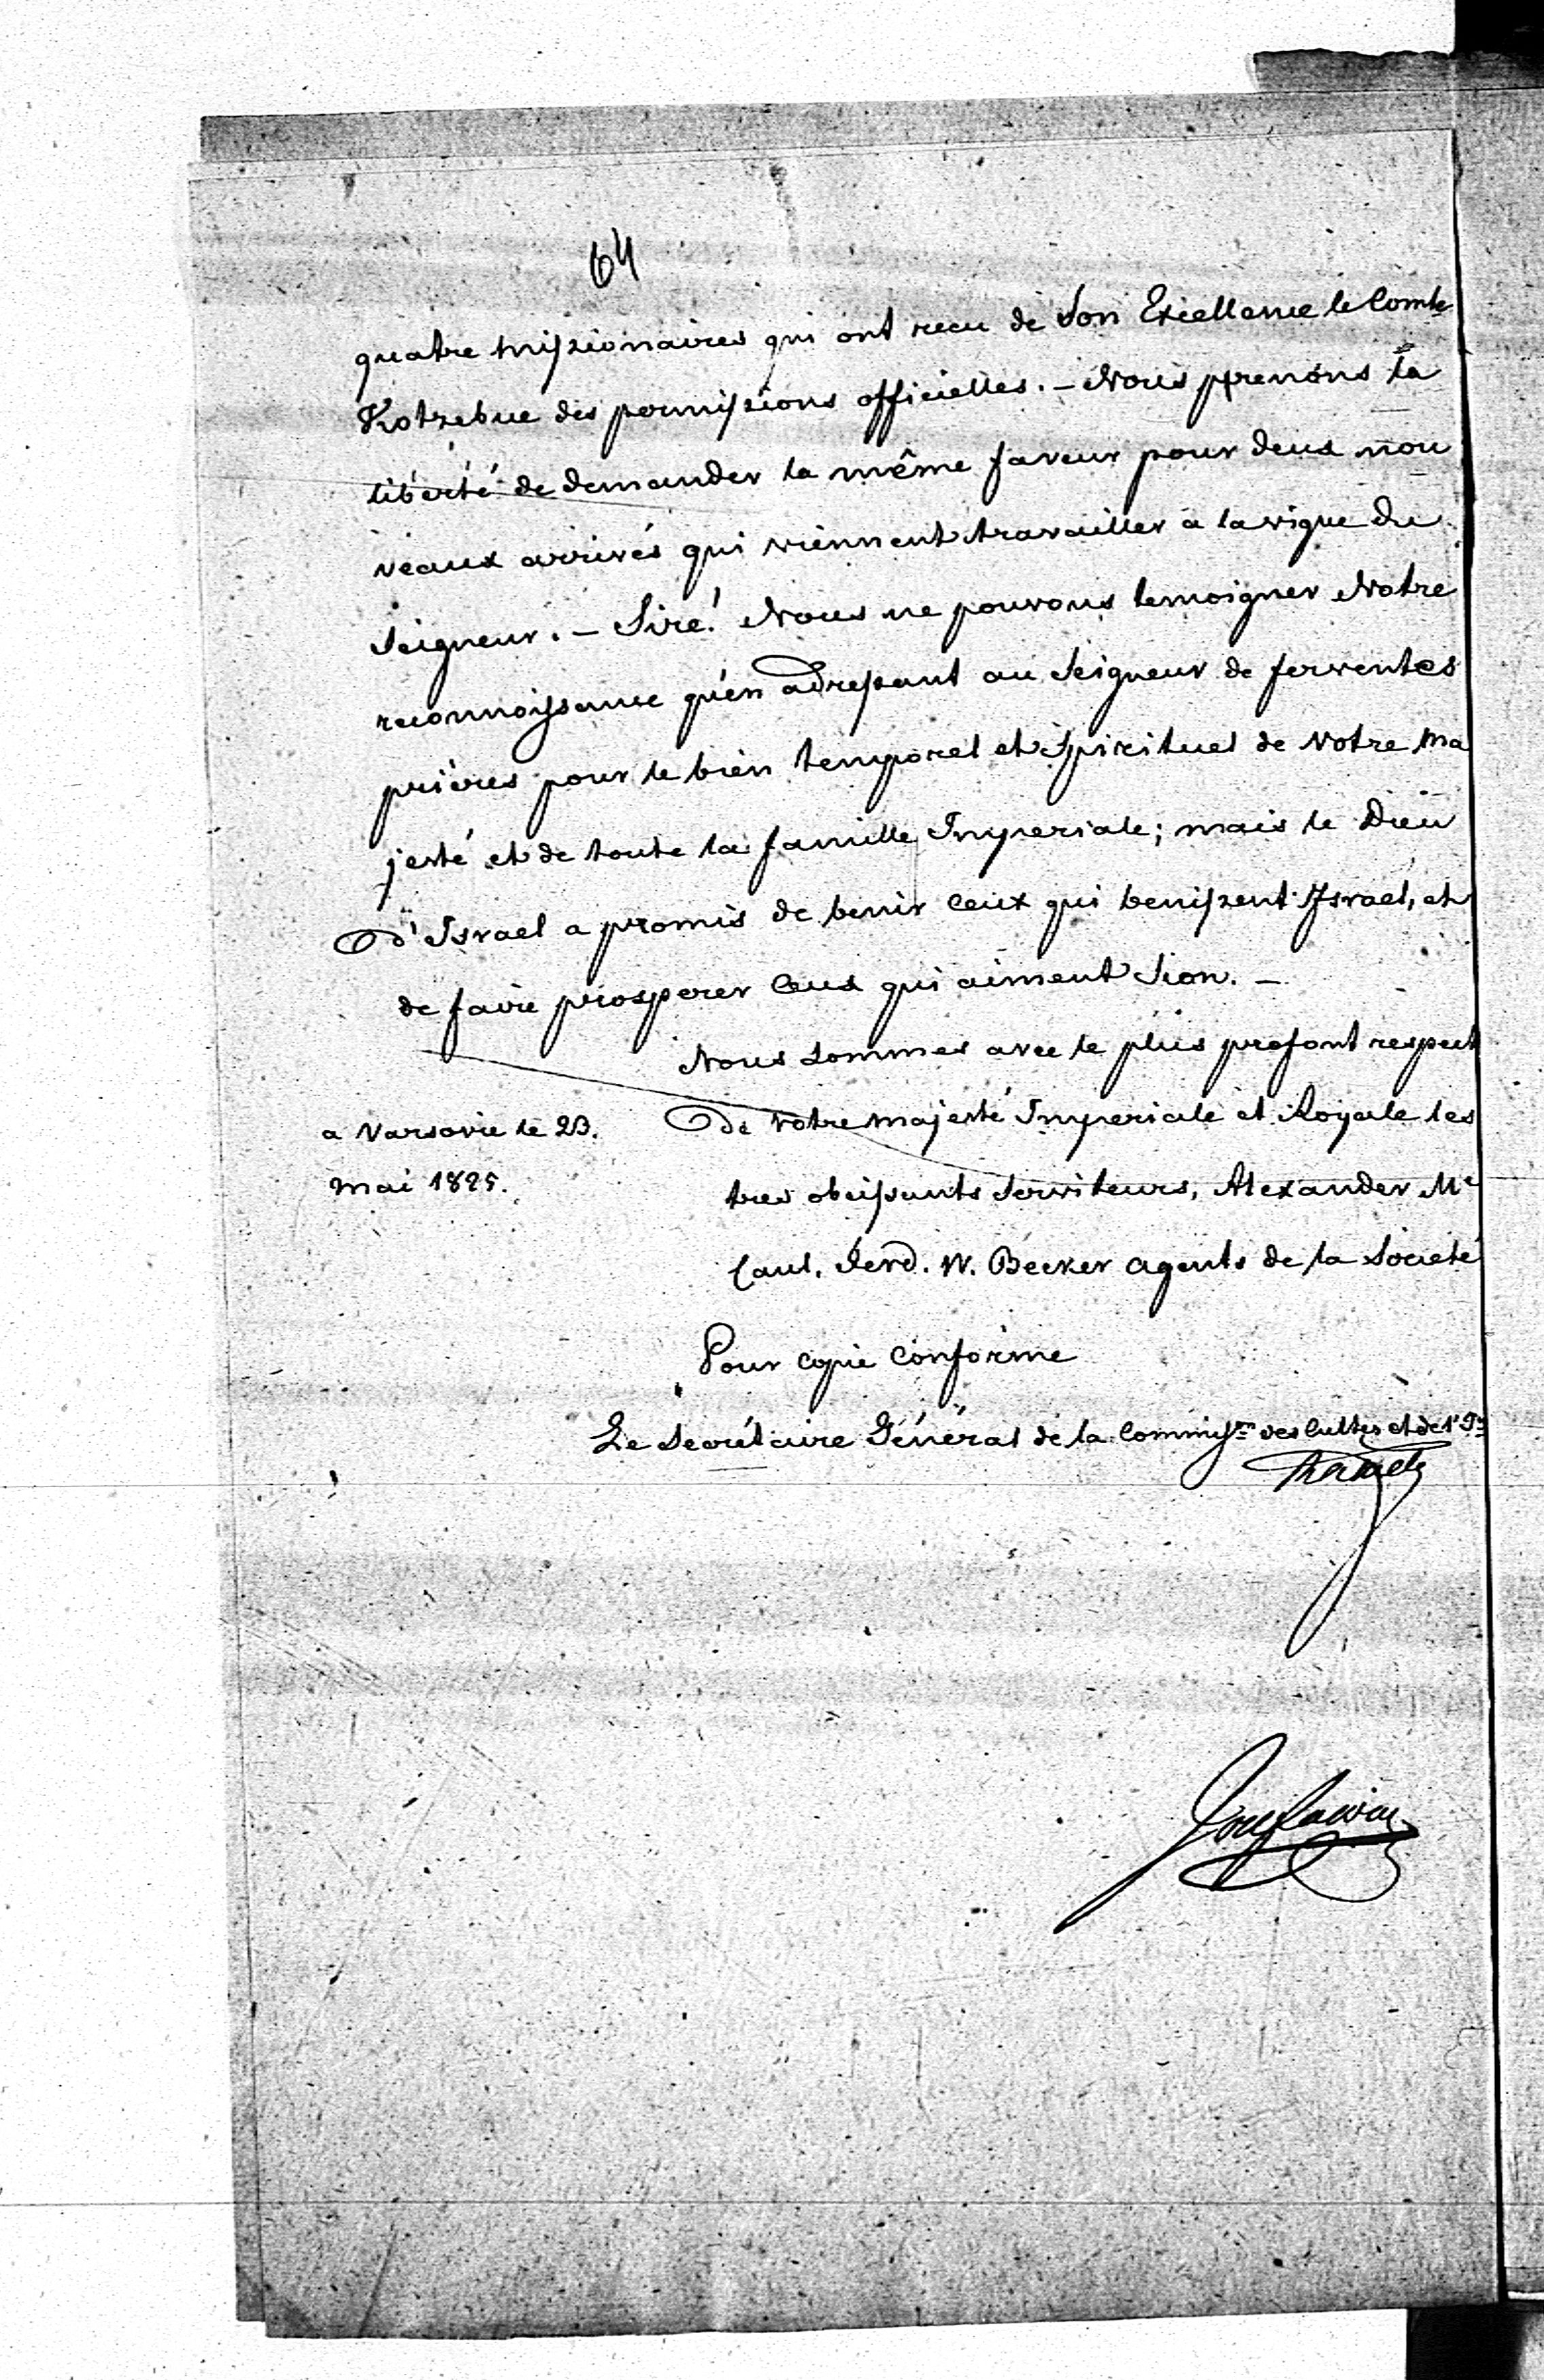 64
quatre missionaires qui ont recu de Son Excellence le Comte
Kotzebue des permissions officielles. – Nous prenons la
liberté de demander la même faveur pour deux nou
veaux arrivés qui viennent travailler à la vigne du
Seigneur. – Sire! Nous ne pouvons temoigner Notre
reconnoissance qu'en adressant au Seigneur de ferventes
prières pour le bien temporel et spirituel de Votre Ma
jesté et de toute la famille Imperiale; mais le Dieu
d'Israel a promis de benir ceux qui benissent Israel, et
de faire prosperer ceux qui aiment Sion. –
Nous sommes avec le plus profont respect
de Votre Majesté Imperiale et Royale les
a Varsovie le 23.
Mai 1825.
tres obeissants Serviteurs, Alexander Mc
Caul. Ferd. W. Becker agents de la Societé
Pour copie conforme
Le Secrétaire Général de la Commissn des Cultes et de l'